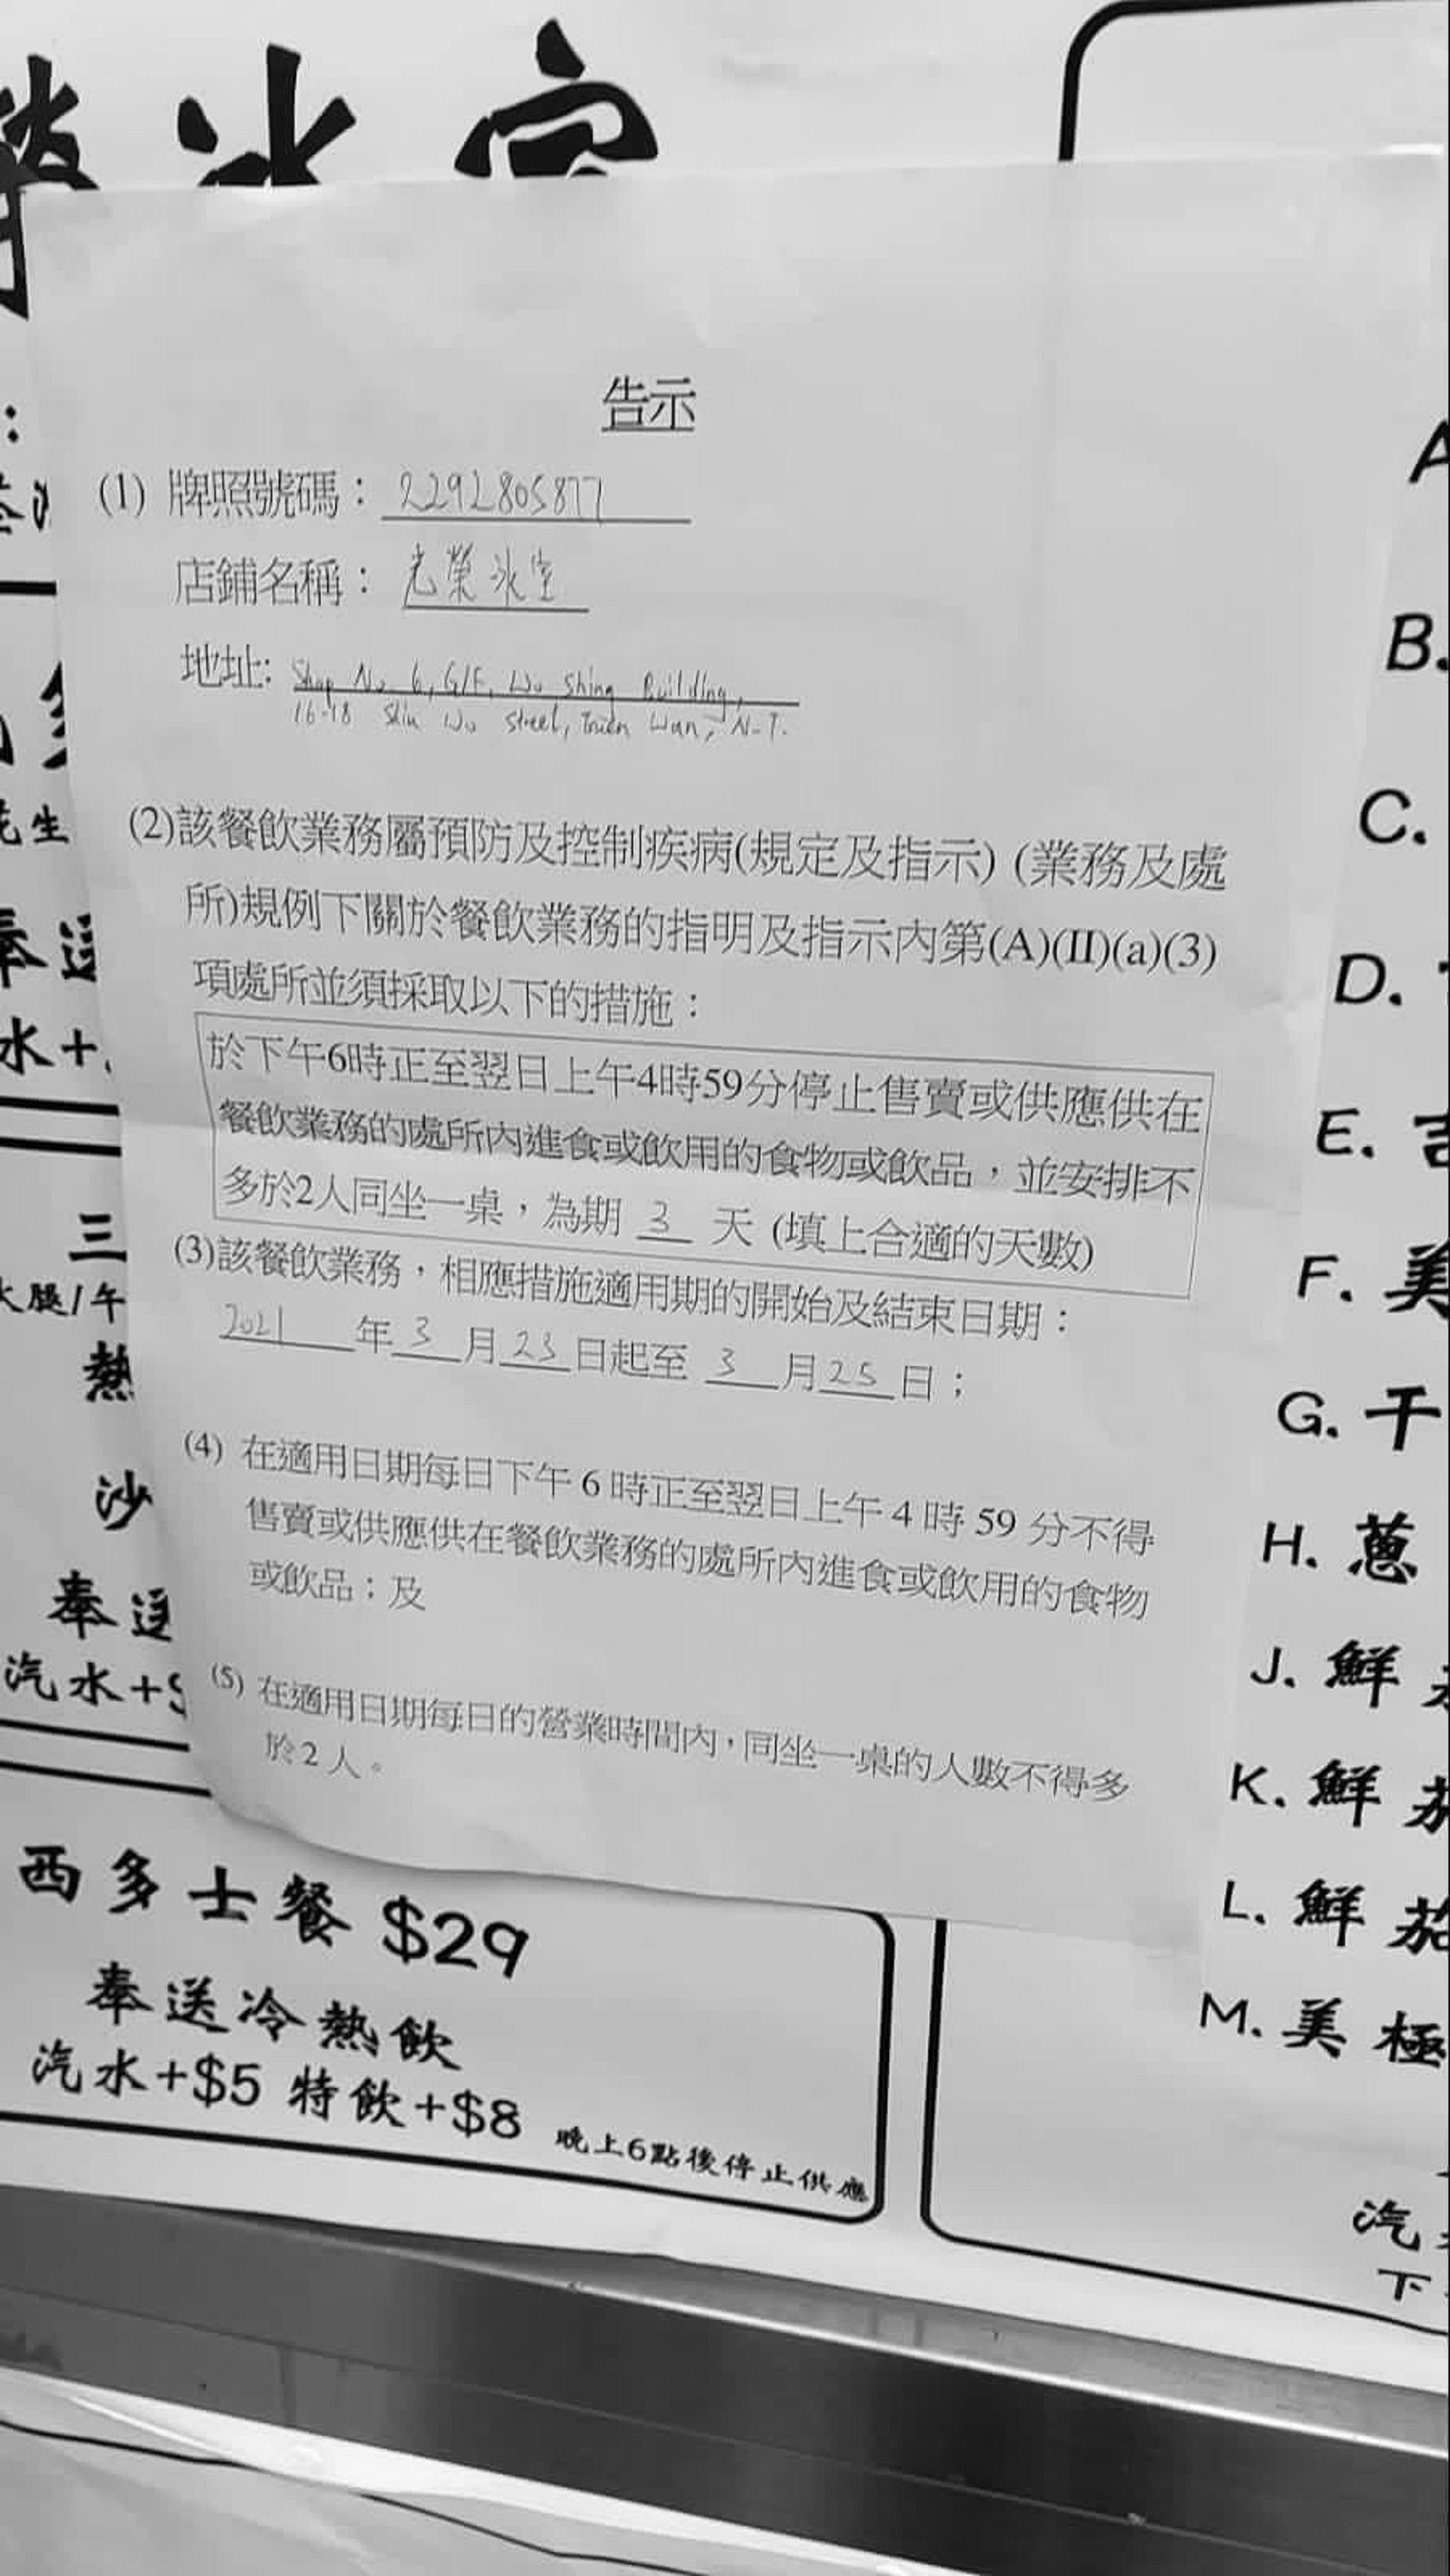 冰室
告示
(1) 牌照號碼：2292805877
店鋪名稱：光榮冰室
地址: Shop No. 6, G/F, Wo Shing Building,
16-18 Shiu Wo Street, Tsuen Wan, N.T.
(2)該餐飲業務屬預防及控制疾病(規定及指示) (業務及處
所)規例下關於餐飲業務的指明及指示內第(A)(II)(a)(3)
項處所並須採取以下的措施：
於下午6時正至翌日上午4時59分停止售賣或供應供在
餐飲業務的處所內進食或飲用的食物或飲品，並安排不
多於2人同坐一桌，為期 3 天 (填上合適的天數)
(3)該餐飲業務，相應措施適用期的開始及結束日期：
2021 年 3 月 23 日起至 3 月 25 日；
(4) 在適用日期每日下午 6 時正至翌日上午 4 時 59 分不得
售賣或供應供在餐飲業務的處所內進食或飲用的食物
或飲品；及
(5) 在適用日期每日的營業時間內，同坐一桌的人數不得多
於 2 人。
花生
奉送
水+
三
火腿/午
熱
沙
奉送
汽水+$
西多士餐 $29
奉送冷熱飲
汽水+$5 特飲+$8 晚上6點後停止供應
A
B.
C.
D.
E. 吉
F. 美
G. 干
H. 蔥
J. 鮮
K. 鮮茄
L. 鮮茄
M. 美極
汽
下